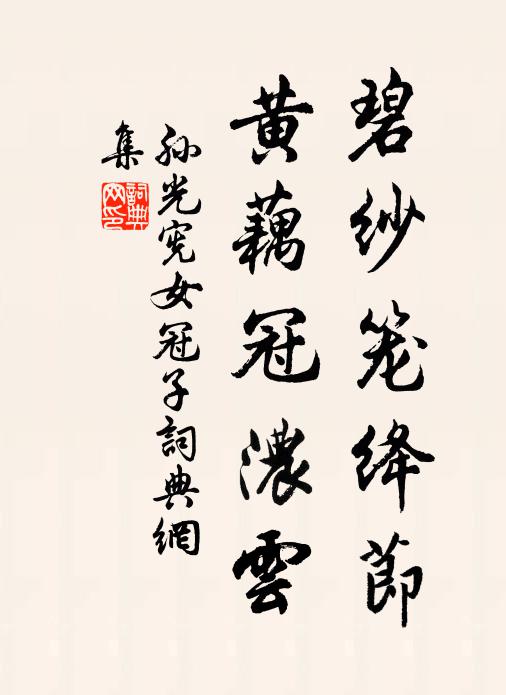 碧纱笼绛節
黃藕冠濃雲
孙光宪女冠子詞典網
集
詞典
网印